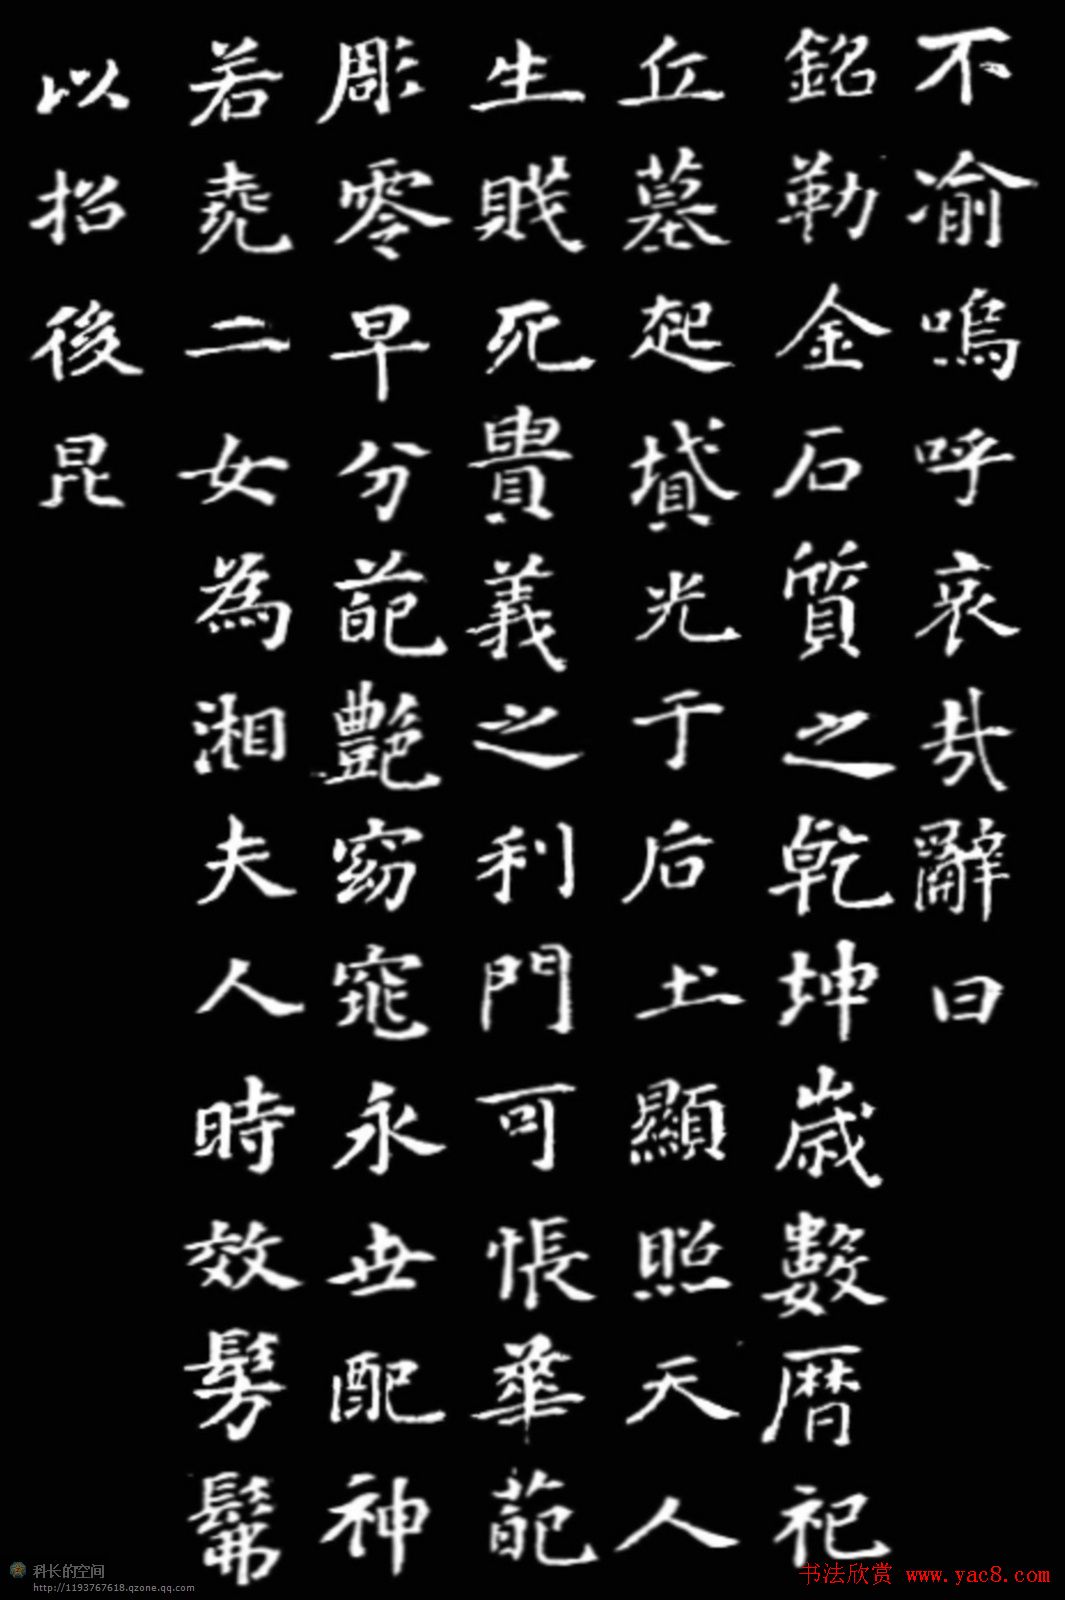 不渝嗚呼哀哉辭曰
銘勒金石質之乾坤歲數曆祀
丘墓起墳光于后土顯照天人
生賤死貴義之利門可悵華葩
彫零早分葩艷窈窕永世配神
若堯二女為湘夫人時效髣髴
以招後昆
科长的空间
http://1193767618.qzone.qq.com
书法欣赏 www.yac8.com